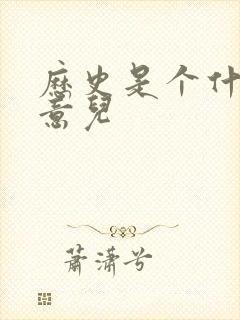 歷史是个什
意兒
蕭潇兮